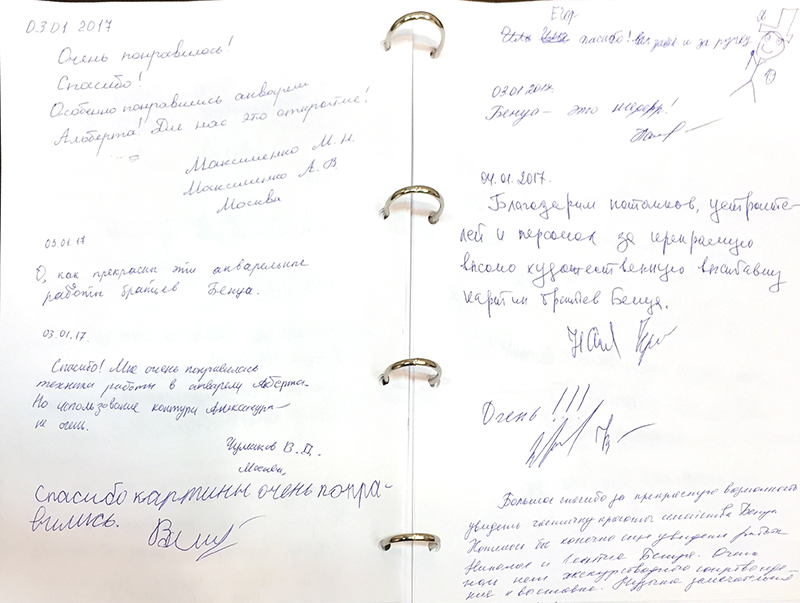 03.01 2017
Очень понравилось!
Спасибо!
Особенно понравились акварели
Альберта! Для нас это открытие!
Максименко М. Н.
Максименко А. В.
Москва
03.01.17
О, как прекрасны эти акварельные
работы братьев Бенуа.
03.01.17.
Спасибо! Мне очень понравилась
техника работы в акварели Альберта.
Но использование контура Александра —
не очень.
Чумаков В. Д.
Москва.
Спасибо картины очень понра-
вились.
Егор
спасибо! и за ручку
03.01.2017.
Бенуа — это шедевр!
04.01.2017.
Благодарим потомков, устроите-
лей и персонал за прекрасную
высоко художественную выставку
картин братьев Бенуа.
Очень!!!
Большое спасибо за прекрасную возможность
увидеть частичку красоты семейства Бенуа
Хотелось бы конечно еще увидеть работы
Николая и Леонтия Бенуа. Очень
экскурсоводного сопровожде-
ния к выставке.